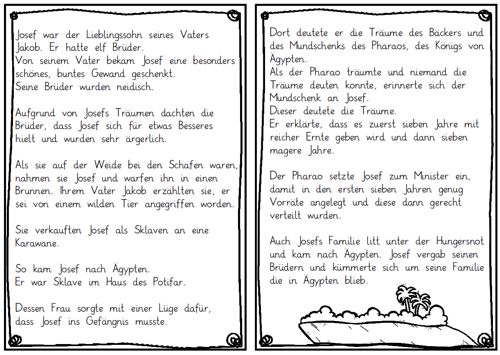 Josef war der Lieblingssohn seines Vaters
Jakob. Er hatte elf Brüder.
Von seinem Vater bekam Josef eine besonders
schönes, buntes Gewand geschenkt.
Seine Brüder wurden neidisch.
Aufgrund von Josefs Träumen dachten die
Brüder, dass Josef sich für etwas Besseres
hielt und wurden sehr ärgerlich.
Als sie auf der Weide bei den Schafen waren,
nahmen sie Josef und warfen ihn in einen
Brunnen. Ihrem Vater Jakob erzählten sie, er
sei von einem wilden Tier angegriffen worden.
Sie verkauften Josef als Sklaven an eine
Karawane.
So kam Josef nach Ägypten.
Er war Sklave im Haus des Potifar.
Dessen Frau sorgte mit einer Lüge dafür,
dass Josef ins Gefängnis musste.
Dort deutete er die Träume des Bäckers und
des Mundschenks des Pharaos, des Königs von
Ägypten.
Als der Pharao träumte und niemand die
Träume deuten konnte, erinnerte sich der
Mundschenk an Josef.
Dieser deutete die Träume.
Er erklärte, dass es zuerst sieben Jahre mit
reicher Ernte geben wird und dann sieben
magere Jahre.
Der Pharao setzte Josef zum Minister ein,
damit in den ersten sieben Jahren genug
Vorräte angelegt und diese dann gerecht
verteilt wurden.
Auch Josefs Familie litt unter der Hungersnot
und kam nach Ägypten. Josef vergab seinen
Brüdern und kümmerte sich um seine Familie
die in Ägypten blieb.